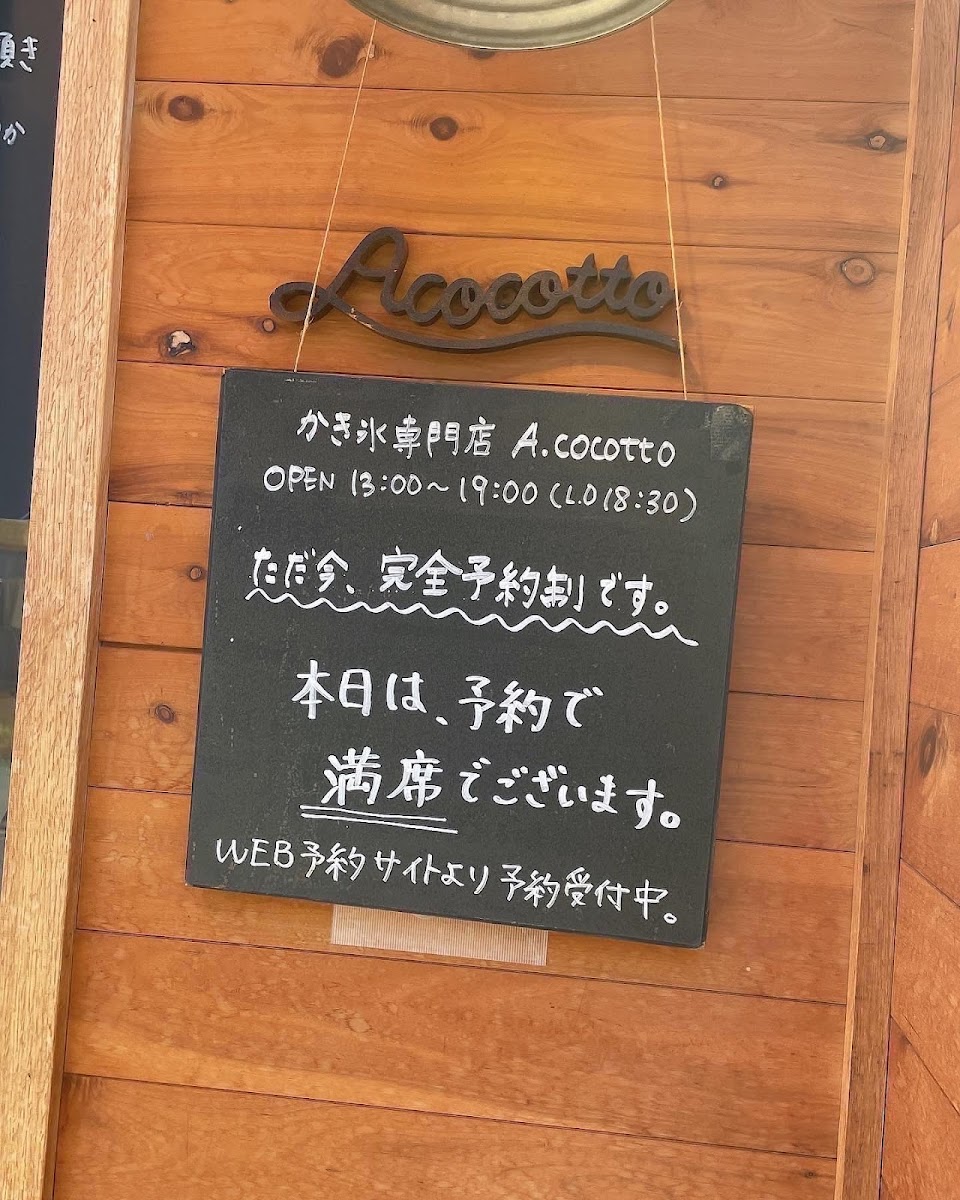 頂き
か
Acocotto
かき氷専門店 A.cocotto
OPEN 13:00～19:00 (L.O 18:30)
ただ今、完全予約制です。
本日は、予約で
満席でございます。
WEB予約サイトより予約受付中。